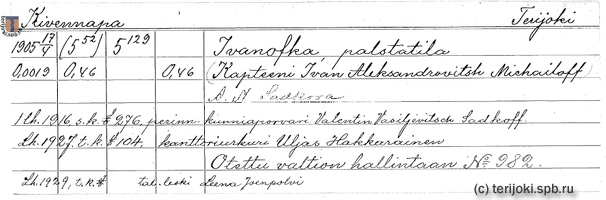 Kivennapa Terijoki
1905 17/4 (5 52) 5 129 Ivanofka, palstatila
0,0019 0,46 0,46 (Kapteeni Ivan Aleksandrovitsh Michailoff)
Sadkova
1 Lh. 1916, s.k. # 276, perinn. kunniaporvari Valentin Vasiljevitsch Sadkoff.
Lh. 1927, t.k. # 104, kanttoriurkuri Uljas Hakkarainen
Otettu valtion hallintaan № 982.
Lh. 1929, t.k. # tal. leski Leena Joenpolvi
(c) terijoki.spb.ru